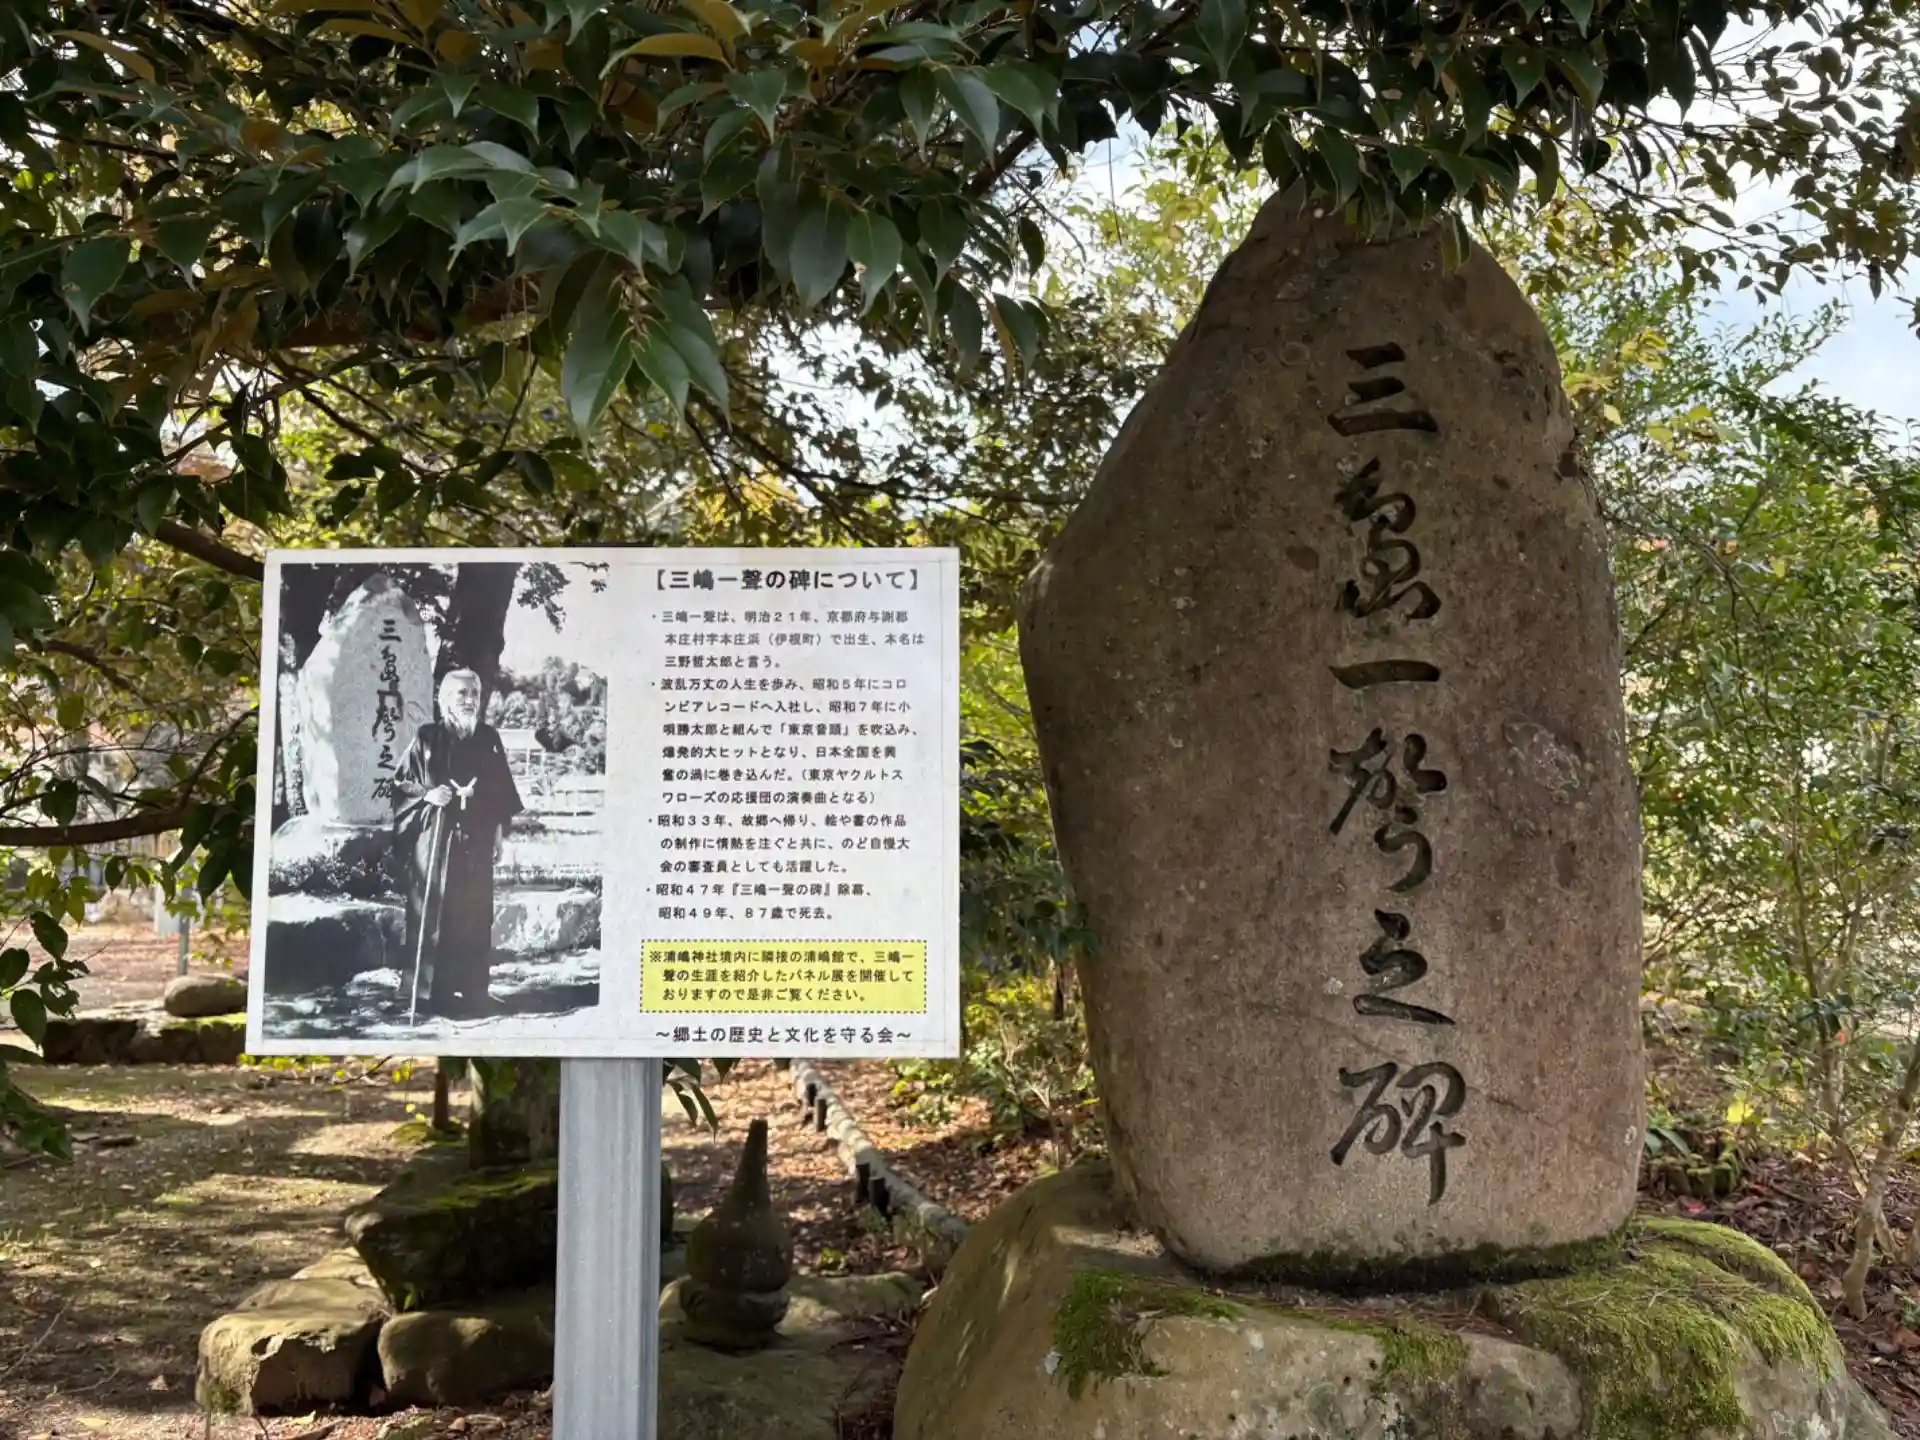 【三嶋一聲の碑について】
・三嶋一聲は、明治２１年、京都府与謝郡
本庄村字本庄浜（伊根町）で出生、本名は
三野哲太郎と言う。
・波乱万丈の人生を歩み、昭和５年にコロ
ンビアレコードへ入社し、昭和７年に小
唄勝太郎と組んで「東京音頭」を吹込み、
爆発的大ヒットとなり、日本全国を興
奮の渦に巻き込んだ。（東京ヤクルトス
ワローズの応援団の演奏曲となる）
・昭和３３年、故郷へ帰り、絵や書の作品
の制作に情熱を注ぐと共に、のど自慢大
会の審査員としても活躍した。
・昭和４７年『三嶋一聲の碑』除幕、
昭和４９年、８７歳で死去。
※浦嶋神社境内に隣接の浦嶋館で、三嶋一
聲の生涯を紹介したパネル展を開催して
おりますので是非ご覧ください。
～郷土の歴史と文化を守る会～
三嶌一聲之碑
三嶌一聲之碑